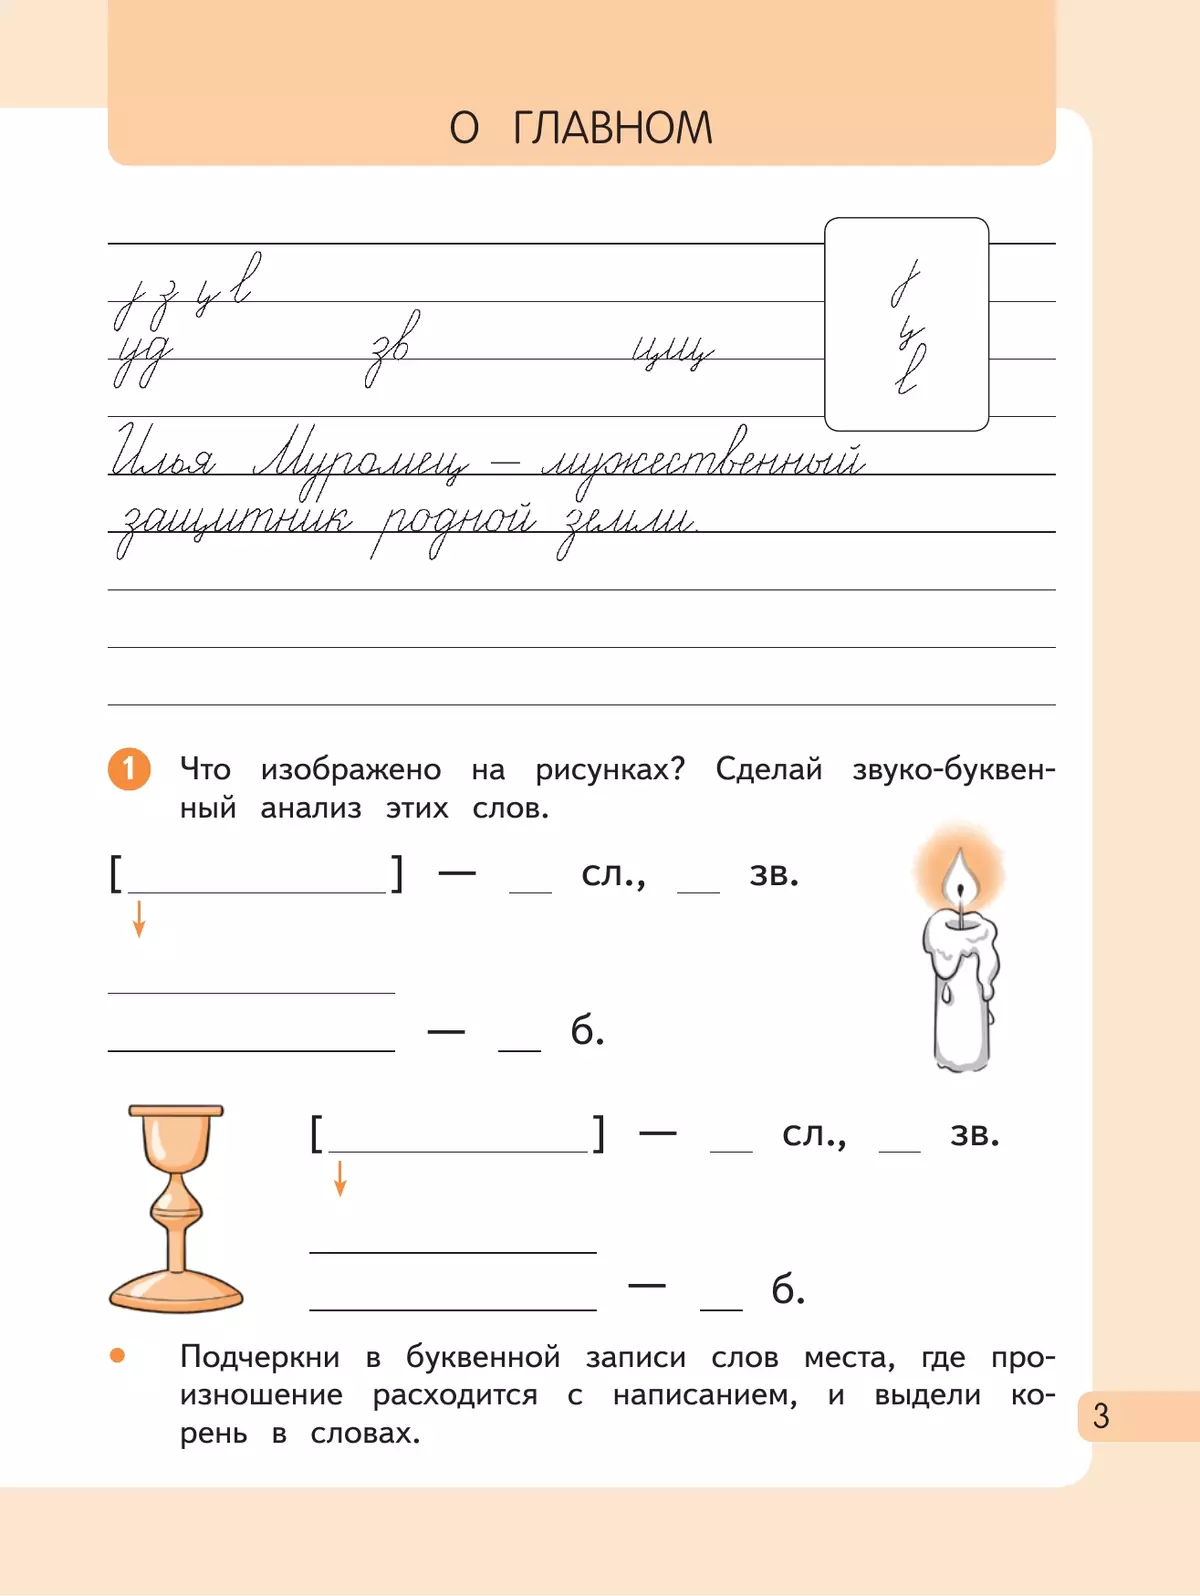 О ГЛАВНОМ
з ц в
уд зв цщ
Илья Муромец — мужественный
защитник родной земли.
1 Что изображено на рисунках? Сделай звуко-буквен-
ный анализ этих слов.
[ ___ ] — __ сл., __ зв.
___ — __ б.
[ ___ ] — __ сл., __ зв.
___ — __ б.
• Подчеркни в буквенной записи слов места, где про-
изношение расходится с написанием, и выдели ко-
рень в словах.
3